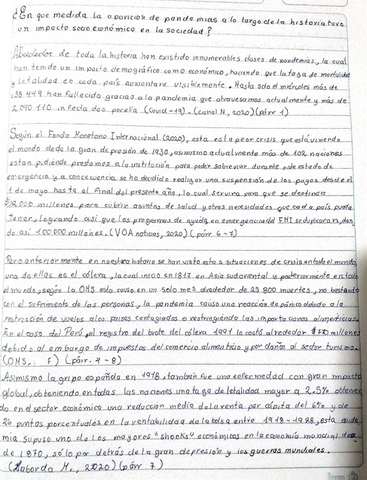 ¿En que medida la aparición de pandemias a lo largo de la historia tuvo
un impacto socio económico en la sociedad?
Alrededor de toda la historia han existido innumerables clases de pandemias, la cual
han tenido un impacto demográfico como económico, haciendo que la taza de mortalidad
y letalidad en cada país aumentara visiblemente. Hasta solo el miércoles más de
138 449 han fallecido gracias a la pandemia que atravesamos actualmente y más de
2 090 110 infectados por ella (Covid-19). (canal N, 2020) (párr 1)
Según el Fondo Monetario Internacional (2020), esta es la peor crisis que está viviendo
el mundo desde la gran depresión de 1930, asimismo actualmente más de 102 naciones
están pidiendo prestamos a la institución para poder sobrevivir durante este estado de
emergencia y a consecuencia se ha decidido realizar una suspensión de los pagos desde el
1 de mayo hasta el final del presente año, lo cual servira para que se destinen
000 millones para cubrir asuntos de salud y otras necesidades que cada país pueda
tener, logrando así que los programas de ayuda en emergencia del FMI se dupliquen, dan
do así 100.000 millones. (VOA noticias, 2020) (párr 6-7)
Pero anteriormente en nuestra historia se han visto este a situaciones de crisis en todo el mundo,
una de ellas es el cólera, la cual inicio en 1817 en Asia sudoriental y posteriormente en todo
el mundo, según la OMS esto causo en un solo mes alrededor de 23 800 muertes, no bastando
con el sufrimiento de las personas, la pandemia causo una reacción de pánico debido a la
restricción de vuelos a los países contagiados o restringiendo las importaciones alimenticias.
En el caso del Perú, el registro del brote del cólera 1991 le costó alrededor $770 millones
debido al embargo de impuestos del comercio alimenticio y por daños al sector turismo.
(OMS, F) (párr. 7-8)
Asimismo la gripe española en 1918, también fue una enfermedad con gran impacto
global, obteniendo en todas las naciones una taza de letalidad mayor a 2,5% obtenien
do en el sector económico una reducción media de la renta per cápita del 6% y de
26 puntos porcentuales en la rentabilidad de la bolsa entre 1918-1988, esta pande
mia supuso uno de los mayores "shocks" económicos en la economía mundial desde
de 1870, sólo por detrás de la gran depresión y las guerras mundiales.
(Laborda M., 2020) (párr 7)